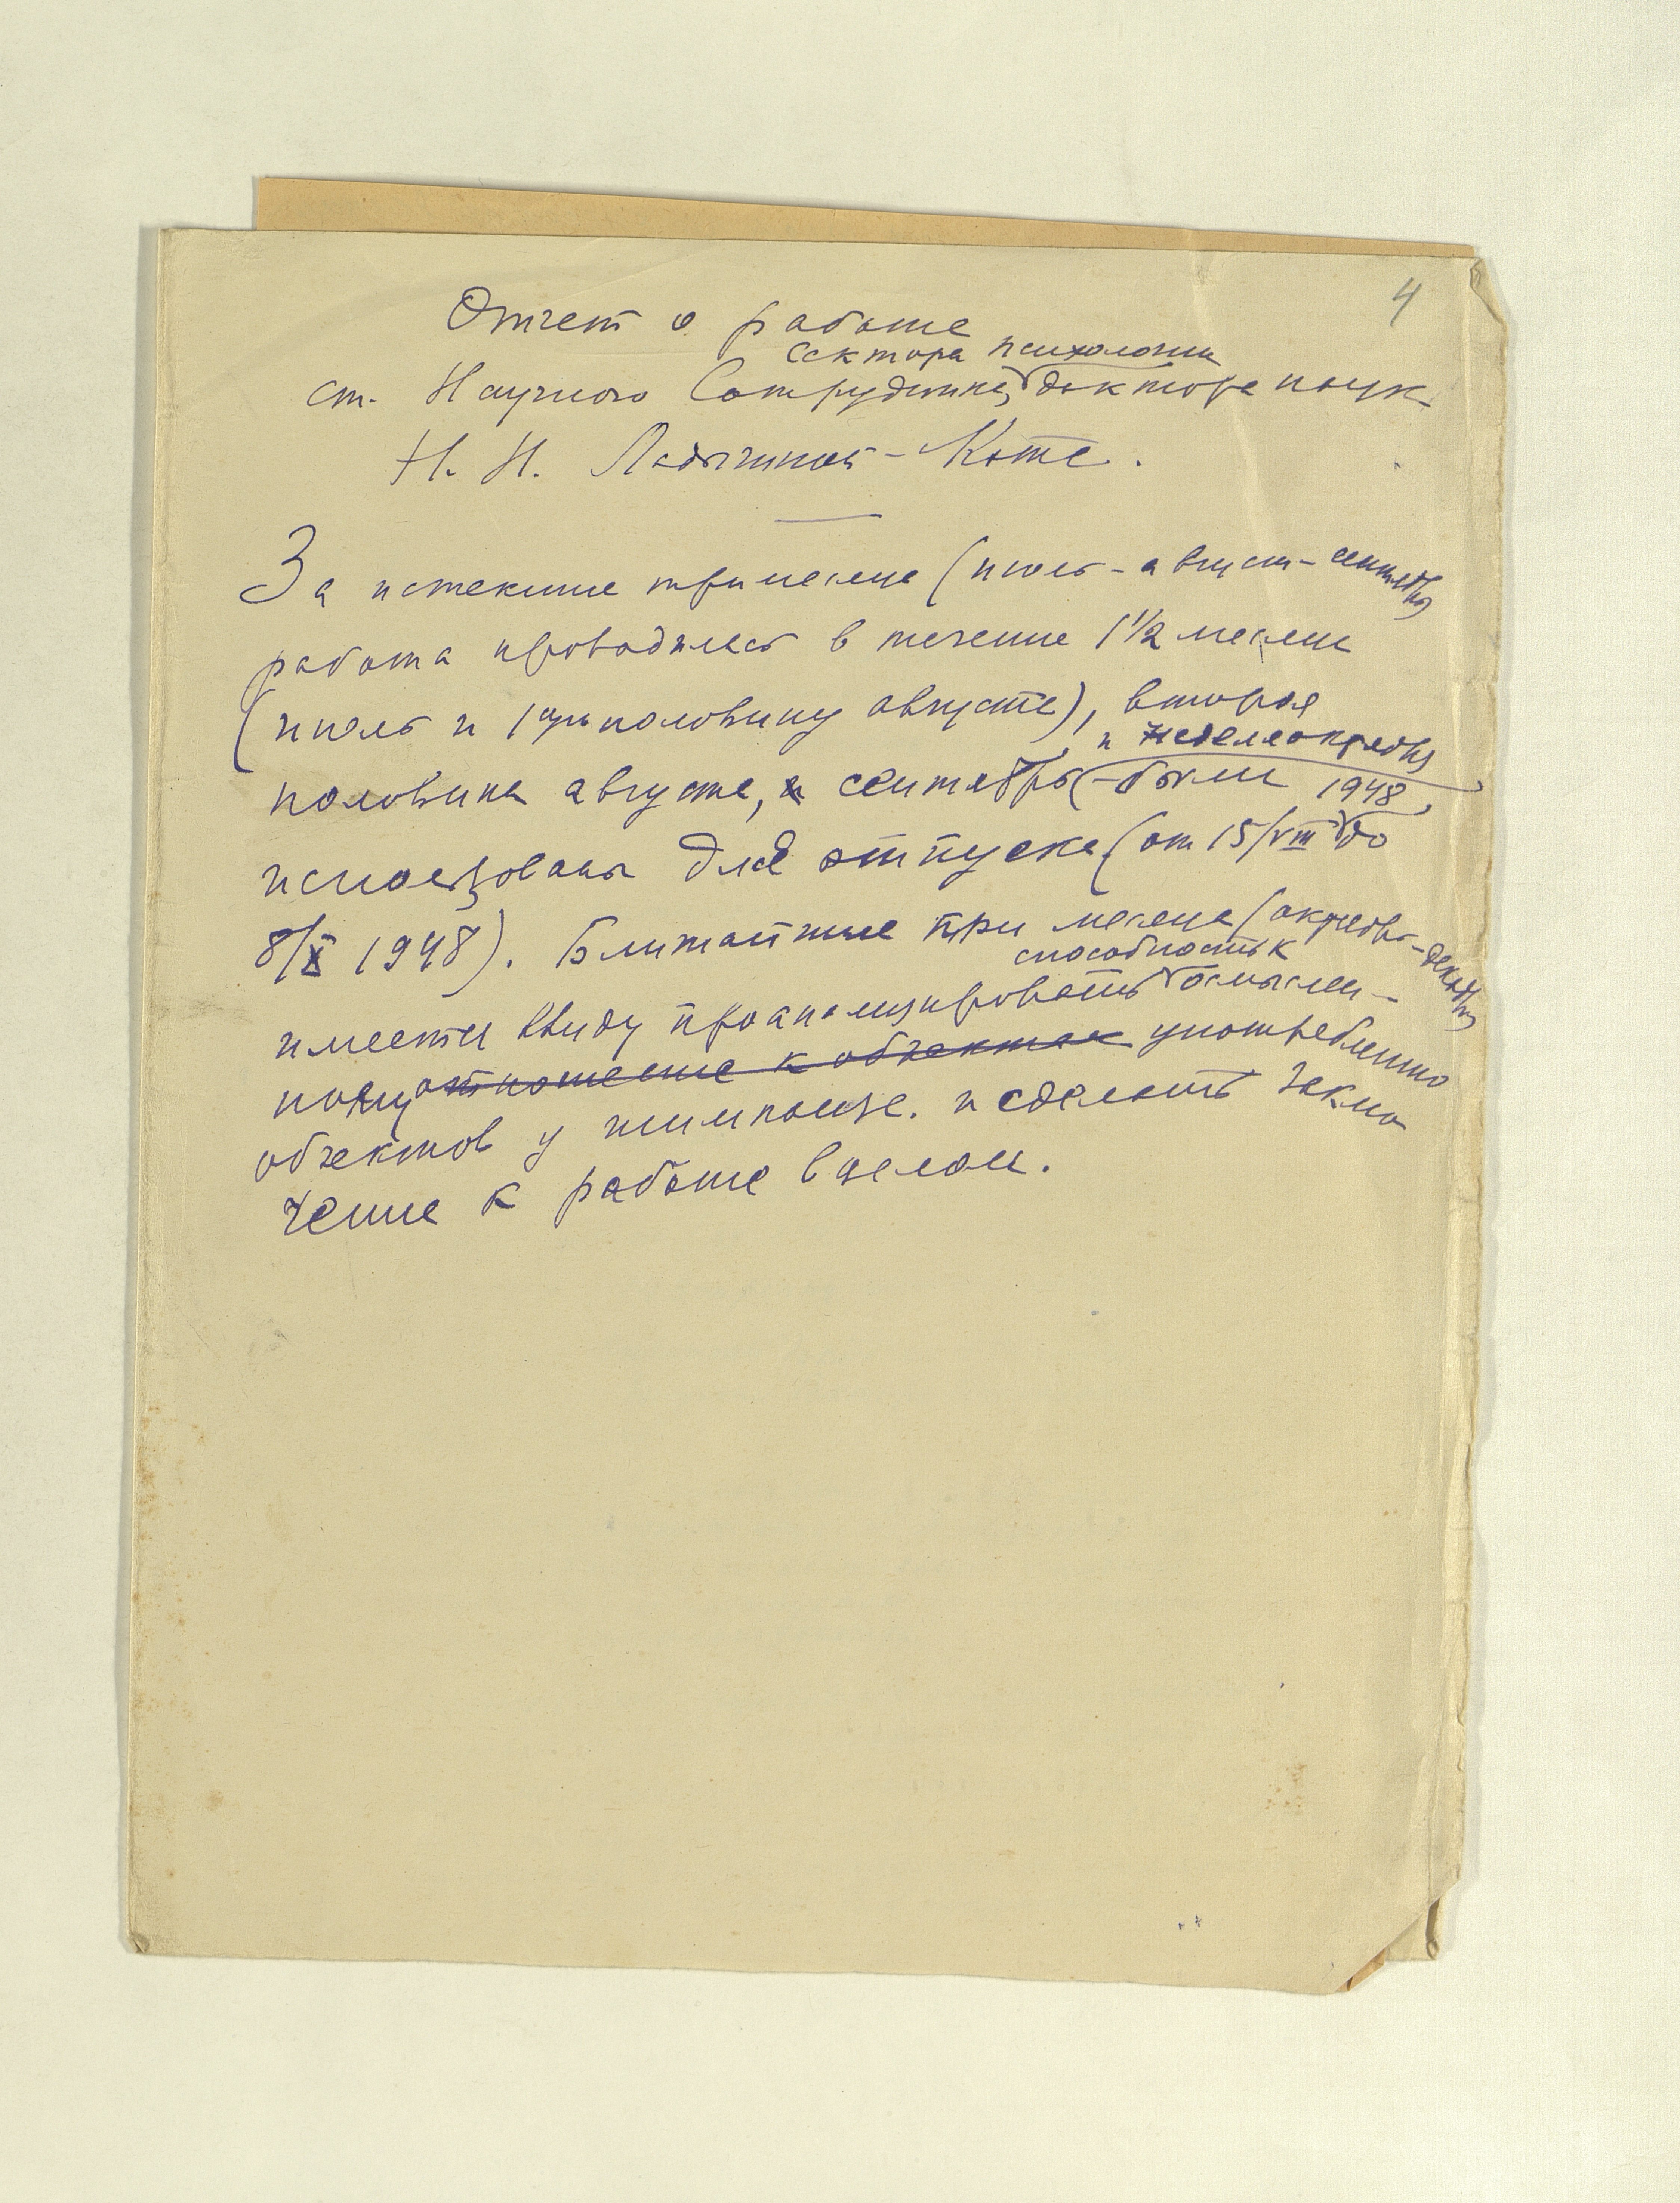 4
Отчет о работе
сектора психологии
ст. Научного Сотрудника, доктора наук
Н. Н. Ладыгиной-Котс.
За истекшие три месяца (июль - август - сентябрь)
работа проводилась в течение 1 1/2 месяца
(июль и 1ую половину августа), вторая
и неделя октября
половина августа, и сентябрь - были
1948
использованы для отпуска (от 15/VIII до
8/X 1948). Ближайшие три месяца (октябрь - декабрь)
способность к
имеется ввиду проанализировать осмыслен-
ному отношение к объектам употреблению
объектов у шимпанзе. и сделать заклю
чение к работе в целом.